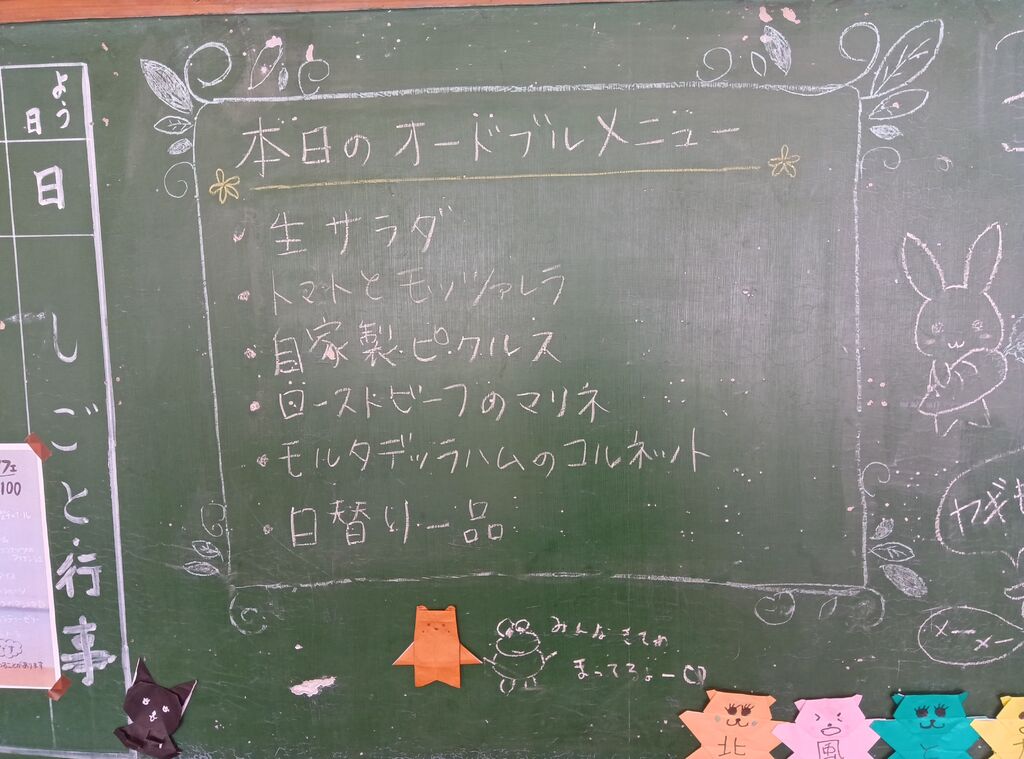 よう日
日
しごと・行事
フェ
100
本日のオードブルメニュー
・生サラダ
・トマトとモッツァレラ
・自家製ピクルス
・ローストビーフのマリネ
・モルタデッラハムのコルネット
・日替り一品
みんなきてね
まってるよー
ヤギ
メーメー
北
風
と